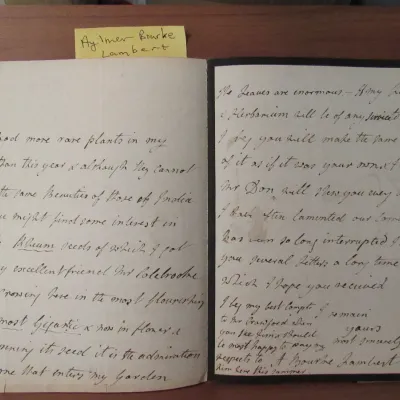 Aylmer Bourke
Lambert
had more rare plants in my
than this year & although they cannot
the same beauties of those of India
you might find some interest in
Rheum seeds of which I got
my excellent friend Mr Colebrooke
growing here in the most flourishing
most Gigantic & now in flower &
its seed it is the admiration
one that enters my Garden
The leaves are enormous – If my
& Herbarium will be of any service
I beg you will make the same
of it as if it was your own &
Mr Don will show you every
I have often lamented our
has been so long interrupted I
you several letters a long time
which I hope you received
I beg my best Compts I remain
to Mr Crawford when yours
you see him I should most sincerely
be most happy to pay my
respects to A Bourke Lambert
him here this summer